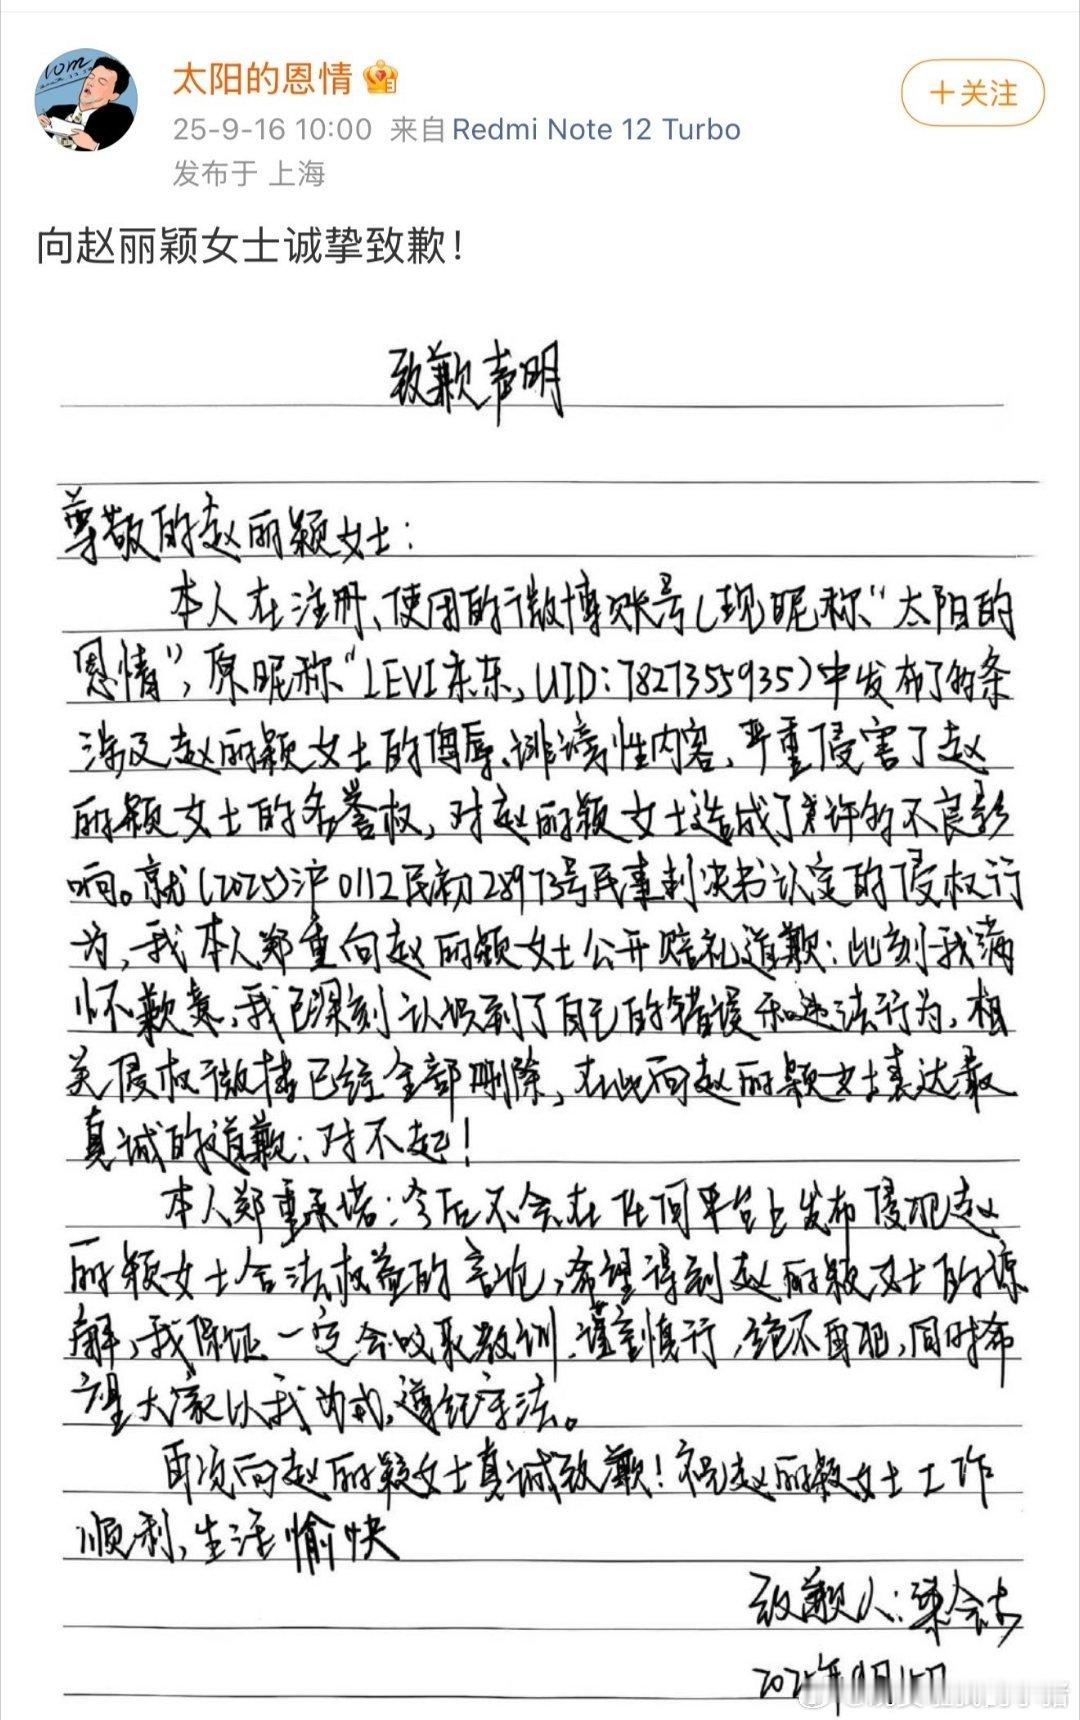 太阳的恩情
+关注
25-9-16 10:00 来自 Redmi Note 12 Turbo
发布于 上海
向赵丽颖女士诚挚致歉！
致歉声明
尊敬的赵丽颖女士：
本人在注册、使用的微博账号(现昵称“太阳的
恩情”，原昵称“LEVI东东，UID：7827355935)中发布了的条
涉及赵丽颖女士的侮辱、诽谤性内容，严重侵害了赵
丽颖女士的名誉权，对赵丽颖女士造成了许的不良影
响。就(2025)沪0112民初28973号民事判决书认定的侵权行
为，我本人郑重向赵丽颖女士公开赔礼道歉：此刻我满
怀歉意，我已深刻认识到了自己的错误和违法行为，相
关侵权微博已经全部删除，在此向赵丽颖女士表达最
真诚的道歉：对不起！
本人郑重承诺：今后不会在任何平台上发布侵犯赵
丽颖女士合法权益的言论，希望得到赵丽颖女士的谅
解，我保证一定会吸取教训、谨言慎行，绝不再犯，同时希
望大家以我为戒，遵纪守法。
再次向赵丽颖女士真诚致歉！祝赵丽颖女士工作
顺利，生活愉快
致歉人：梁会
2025年9月15日